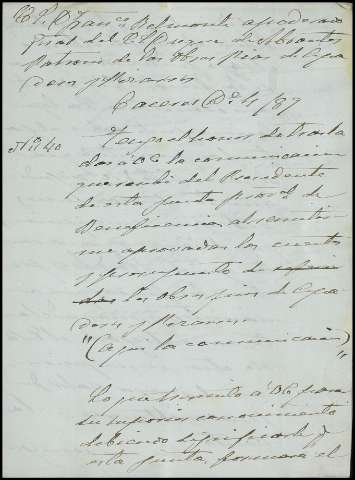 Sr. Dn. Franco. Belmonte apoderado
gral. del E. S. Duque de Abrantes
Patrono de las obras pias de Ovan
dos y Moraver
Caceres 4/87
N.º 40
Tengo el honor de trasla
dar á V. la comunicacion
que recibí del Presidente
de esta junta proval. de
Beneficencia al remitir
me aprovadas las cuentas
y presupuesto de
las obras pias de
y
"(Aqui la comunicacion)"
Lo que trasmito á V. para
su superior conocimiento
debiendo significarle q.
esta junta, formará el